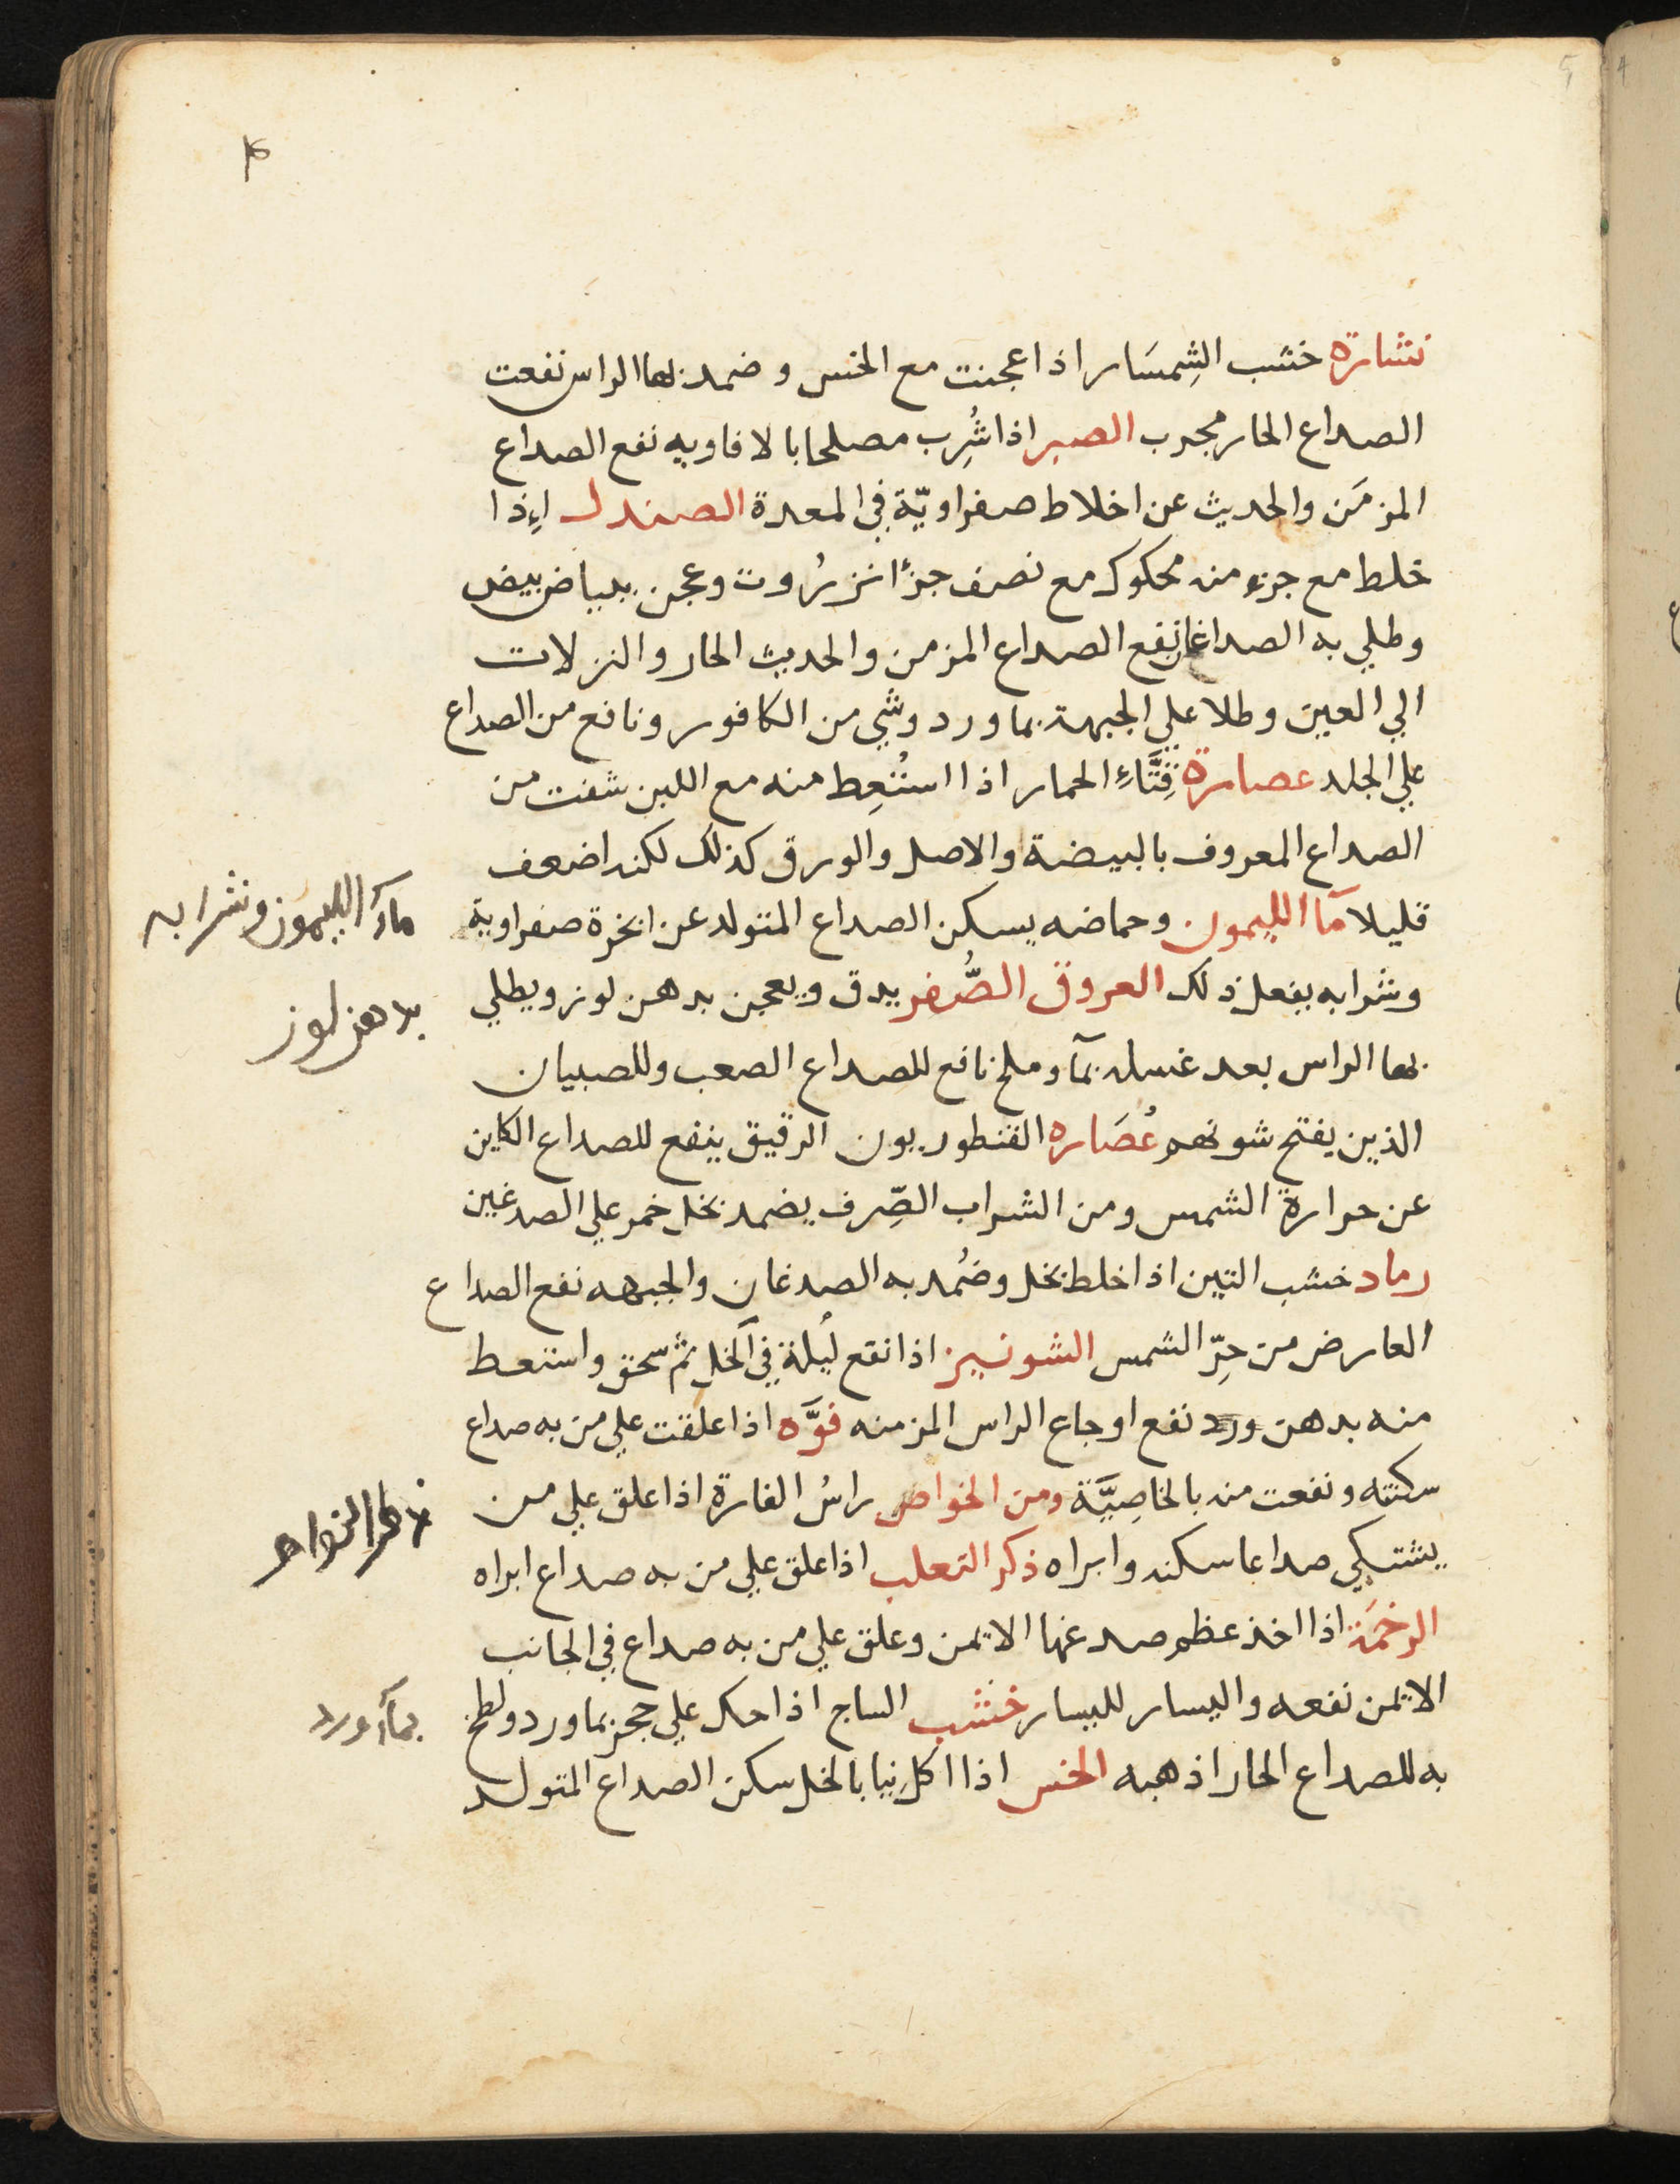 نشارة خشب الشِمسَار اذا عجنت مع الخس و ضمد بها الراس نفعت
الصداع الحار مجرب الصبر اذا شُرِب مصلحا بالافاويه نفع الصداع
المزمَن والحديث عن اخلاط صفراويّة في المعدة الصندل إذا
خلط مع جزء منه محكوك مع نصف جزءا نزرُوت وعجن ببياض بيض
وطلي به الصداغان نفع الصداع المزمن والحديث الحار والنزلات
الي العين وطلا علي الجبهة بماورد وشي من الكافور ونافع من الصداع
علي الجلد عصارة قِثَّاءِ الحمار اذا استُعِط منه مع اللبن شفت من
الصداع المعروف بالبيضة والاصل والورق كذلك لكنه اضعف
قليلا مآ الليمون وحماضه يسكن الصداع المتولد عن ابخرة صفراوية
وشرابه يفعل ذلك العروق الصُّفر يدق ويعجن بدهن لوز ويطلي
بها الراس بعد غسله بمآ وملح نافع للصداع الصعب وللصبيان
الذين يفتح شونهم عُصَاره القنطوريون الرقيق ينفع للصداع الكاين
عن حرارة الشمس ومن الشراب الصِّرف يضمد بخل خمر علي الصدغين
رماد خشب التين اذا خلط بخل وضُمد به الصدغان والجبهه نفع الصداع
العارض من حِرّ الشمس الشونيز اذا نقع ليلة في الخل ثم سحق واستعط
منه بدهن ورد نفع اوجاع الراس المزمنه فوَّه اذا علقت علي من به صداع
سكنته ونفعت منه بالخاصِيَّة ومن الخواص راسُ الفارة اذا علق علي من
يشتكي صداعا سكنه وابراه ذكر الثعلب اذا علق علي من به صداع ابراه
الرخمَة اذا اخذ عظم صدغها الايمن وعلق علي من به صداع في الجانب
الايمن نفعه واليسار لليسار خشب الساج اذا حك علي حجر بماورد ولطخ
به للصداع الحار اذهبه الخس اذا اكل نيا بالخل سكن الصداع المتولد
مآء الليمون وشرابه
بدهن لوز
ذكر الخواص
بمآء ورد
4
5